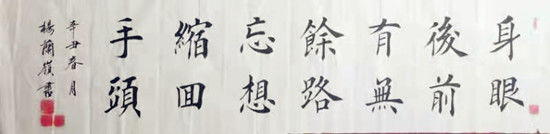 身後有餘忘縮手
眼前無路想囬頭
辛丑春月
楊蘭嶺書